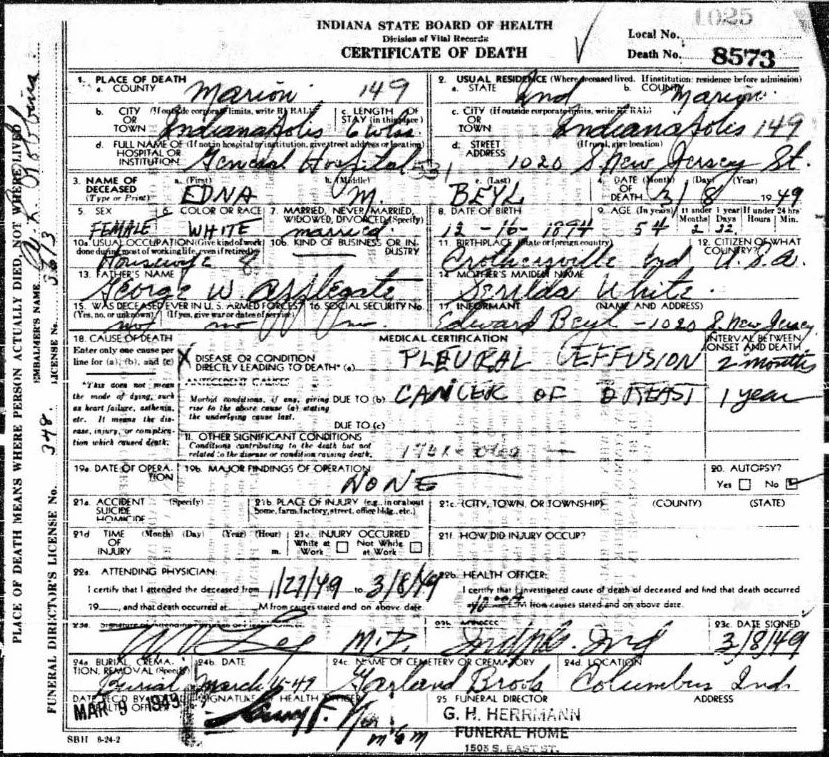 INDIANA STATE BOARD OF HEALTH
Division of Vital Records
CERTIFICATE OF DEATH
1025
Local No.
Death No. 8573
1. PLACE OF DEATH
a. COUNTY Marion 149
2. USUAL RESIDENCE (Where deceased lived. If institution: residence before admission)
a. STATE Ind b. COUNTY Marion
b. CITY (If outside corporate limits, write RURAL) OR TOWN Indianapolis
c. LENGTH OF STAY (in this place) 6 wks.
c. CITY (If outside corporate limits, write RURAL) OR TOWN Indianapolis 149
d. FULL NAME OF (If not in hospital or institution, give street address or location) HOSPITAL OR INSTITUTION General Hospital
d. STREET ADDRESS (If rural, give location) 1020 S. New Jersey St.
3. NAME OF DECEASED (Type or Print)
a. (First) EDNA
b. (Middle) M.
c. (Last) BEYL
4. DATE OF DEATH (Month) (Day) (Year) 3/8 1949
5. SEX FEMALE
6. COLOR OR RACE WHITE
7. MARRIED, NEVER MARRIED, WIDOWED, DIVORCED (Specify) married
8. DATE OF BIRTH 12-16-1894
9. AGE (In years) 54 If under 1 year Months 2 Days 22 If under 24 hrs Hours Min.
10a. USUAL OCCUPATION (Give kind of work done during most of working life, even if retired) Housewife
10b. KIND OF BUSINESS OR INDUSTRY
11. BIRTHPLACE (State or foreign country) Crothersville Ind
12. CITIZEN OF WHAT COUNTRY? U.S.A.
13. FATHER'S NAME George W. Applegate
14. MOTHER'S MAIDEN NAME Serilda White
15. WAS DECEASED EVER IN U. S. ARMED FORCES? (Yes, no, or unknown) (If yes, give war or dates of service) no no
16. SOCIAL SECURITY No. no
17. INFORMANT (NAME AND ADDRESS) Edward Beyl - 1020 S. New Jersey
18. CAUSE OF DEATH
Enter only one cause per line for (a), (b), and (c)
MEDICAL CERTIFICATION
INTERVAL BETWEEN ONSET AND DEATH
X DISEASE OR CONDITION DIRECTLY LEADING TO DEATH* (a) PLEURAL EFFUSION 2 months
*This does not mean the mode of dying, such as heart failure, asthenia, etc. It means the disease, injury, or complication which caused death.
ANTECEDENT CAUSES
Morbid conditions, if any, giving rise to the above cause (a) stating the underlying cause last.
DUE TO (b) CANCER OF BREAST 1 year
DUE TO (c)
II. OTHER SIGNIFICANT CONDITIONS
Conditions contributing to the death but not related to the disease or condition causing death.
19a. DATE OF OPERATION
19b. MAJOR FINDINGS OF OPERATION NONE
20. AUTOPSY? Yes No
21a. ACCIDENT SUICIDE HOMICIDE (Specify)
21b. PLACE OF INJURY (e.g., in or about home, farm, factory, street, office bldg., etc.)
21c. (CITY, TOWN, OR TOWNSHIP) (COUNTY) (STATE)
21d. TIME OF INJURY (Month) (Day) (Year) (Hour) m.
21e. INJURY OCCURRED While at Work Not While at Work
21f. HOW DID INJURY OCCUR?
22a. ATTENDING PHYSICIAN:
I certify that I attended the deceased from 1/27/49 to 3/8/49
19___, and that death occurred at M from causes stated and on above date.
22b. HEALTH OFFICER:
I certify that I investigated cause of death of deceased and find that death occurred
M from causes stated and on above date.
23a. Signature of Attending Physician M.D.
23b. ADDRESS Indpls. Ind
23c. DATE SIGNED 3/8/49
24a. BURIAL, CREMATION, REMOVAL (Specify) Burial
24b. DATE March
24c. NAME OF CEMETERY OR CREMATORY Garland Brook
24d. LOCATION Columbus Ind.
DATE REC'D BY HEALTH OFFICER MAR 9 1949
SIGNATURE OF HEALTH OFFICER
25. FUNERAL DIRECTOR ADDRESS
G. H. HERRMANN
FUNERAL HOME
1505 S. EAST ST.
SBH 6-24-2
PLACE OF DEATH MEANS WHERE PERSON ACTUALLY DIED, NOT WHERE LIVED
EMBALMER'S NAME Robbins
LICENSE No. 363
FUNERAL DIRECTOR'S LICENSE No. 348